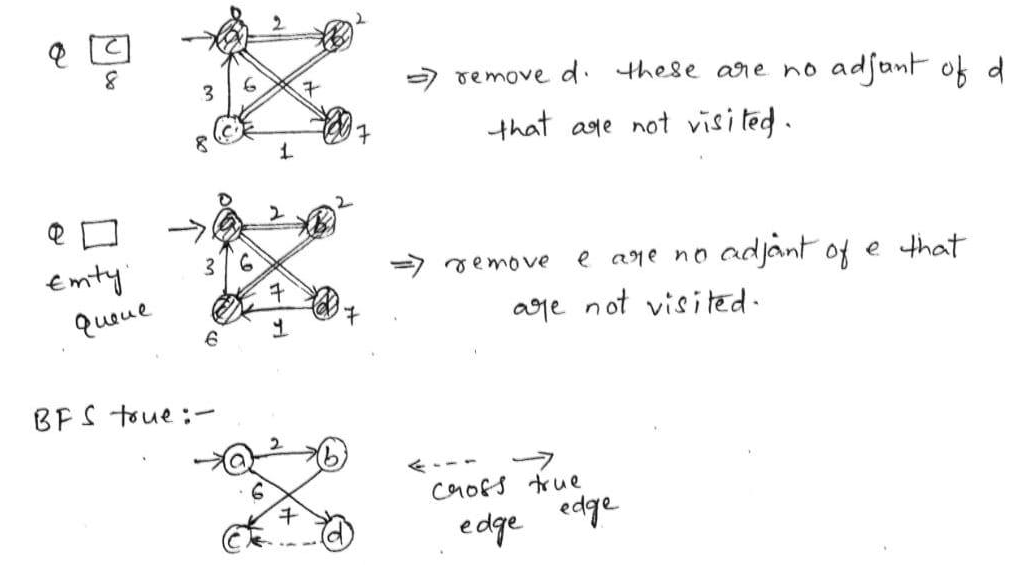 0
2
a b 2
Q C
8
3 6 7
8 c d 7
1
⇒ remove d. these are no adjant of d
that are not visited.
0
2
a b 2
Q
Emty
queue
3 6
7
d 7
6 1
⇒ remove e are no adjant of e that
are not visited.
BFS true :-
2
a b
6
7
c d
cross true
edge edge